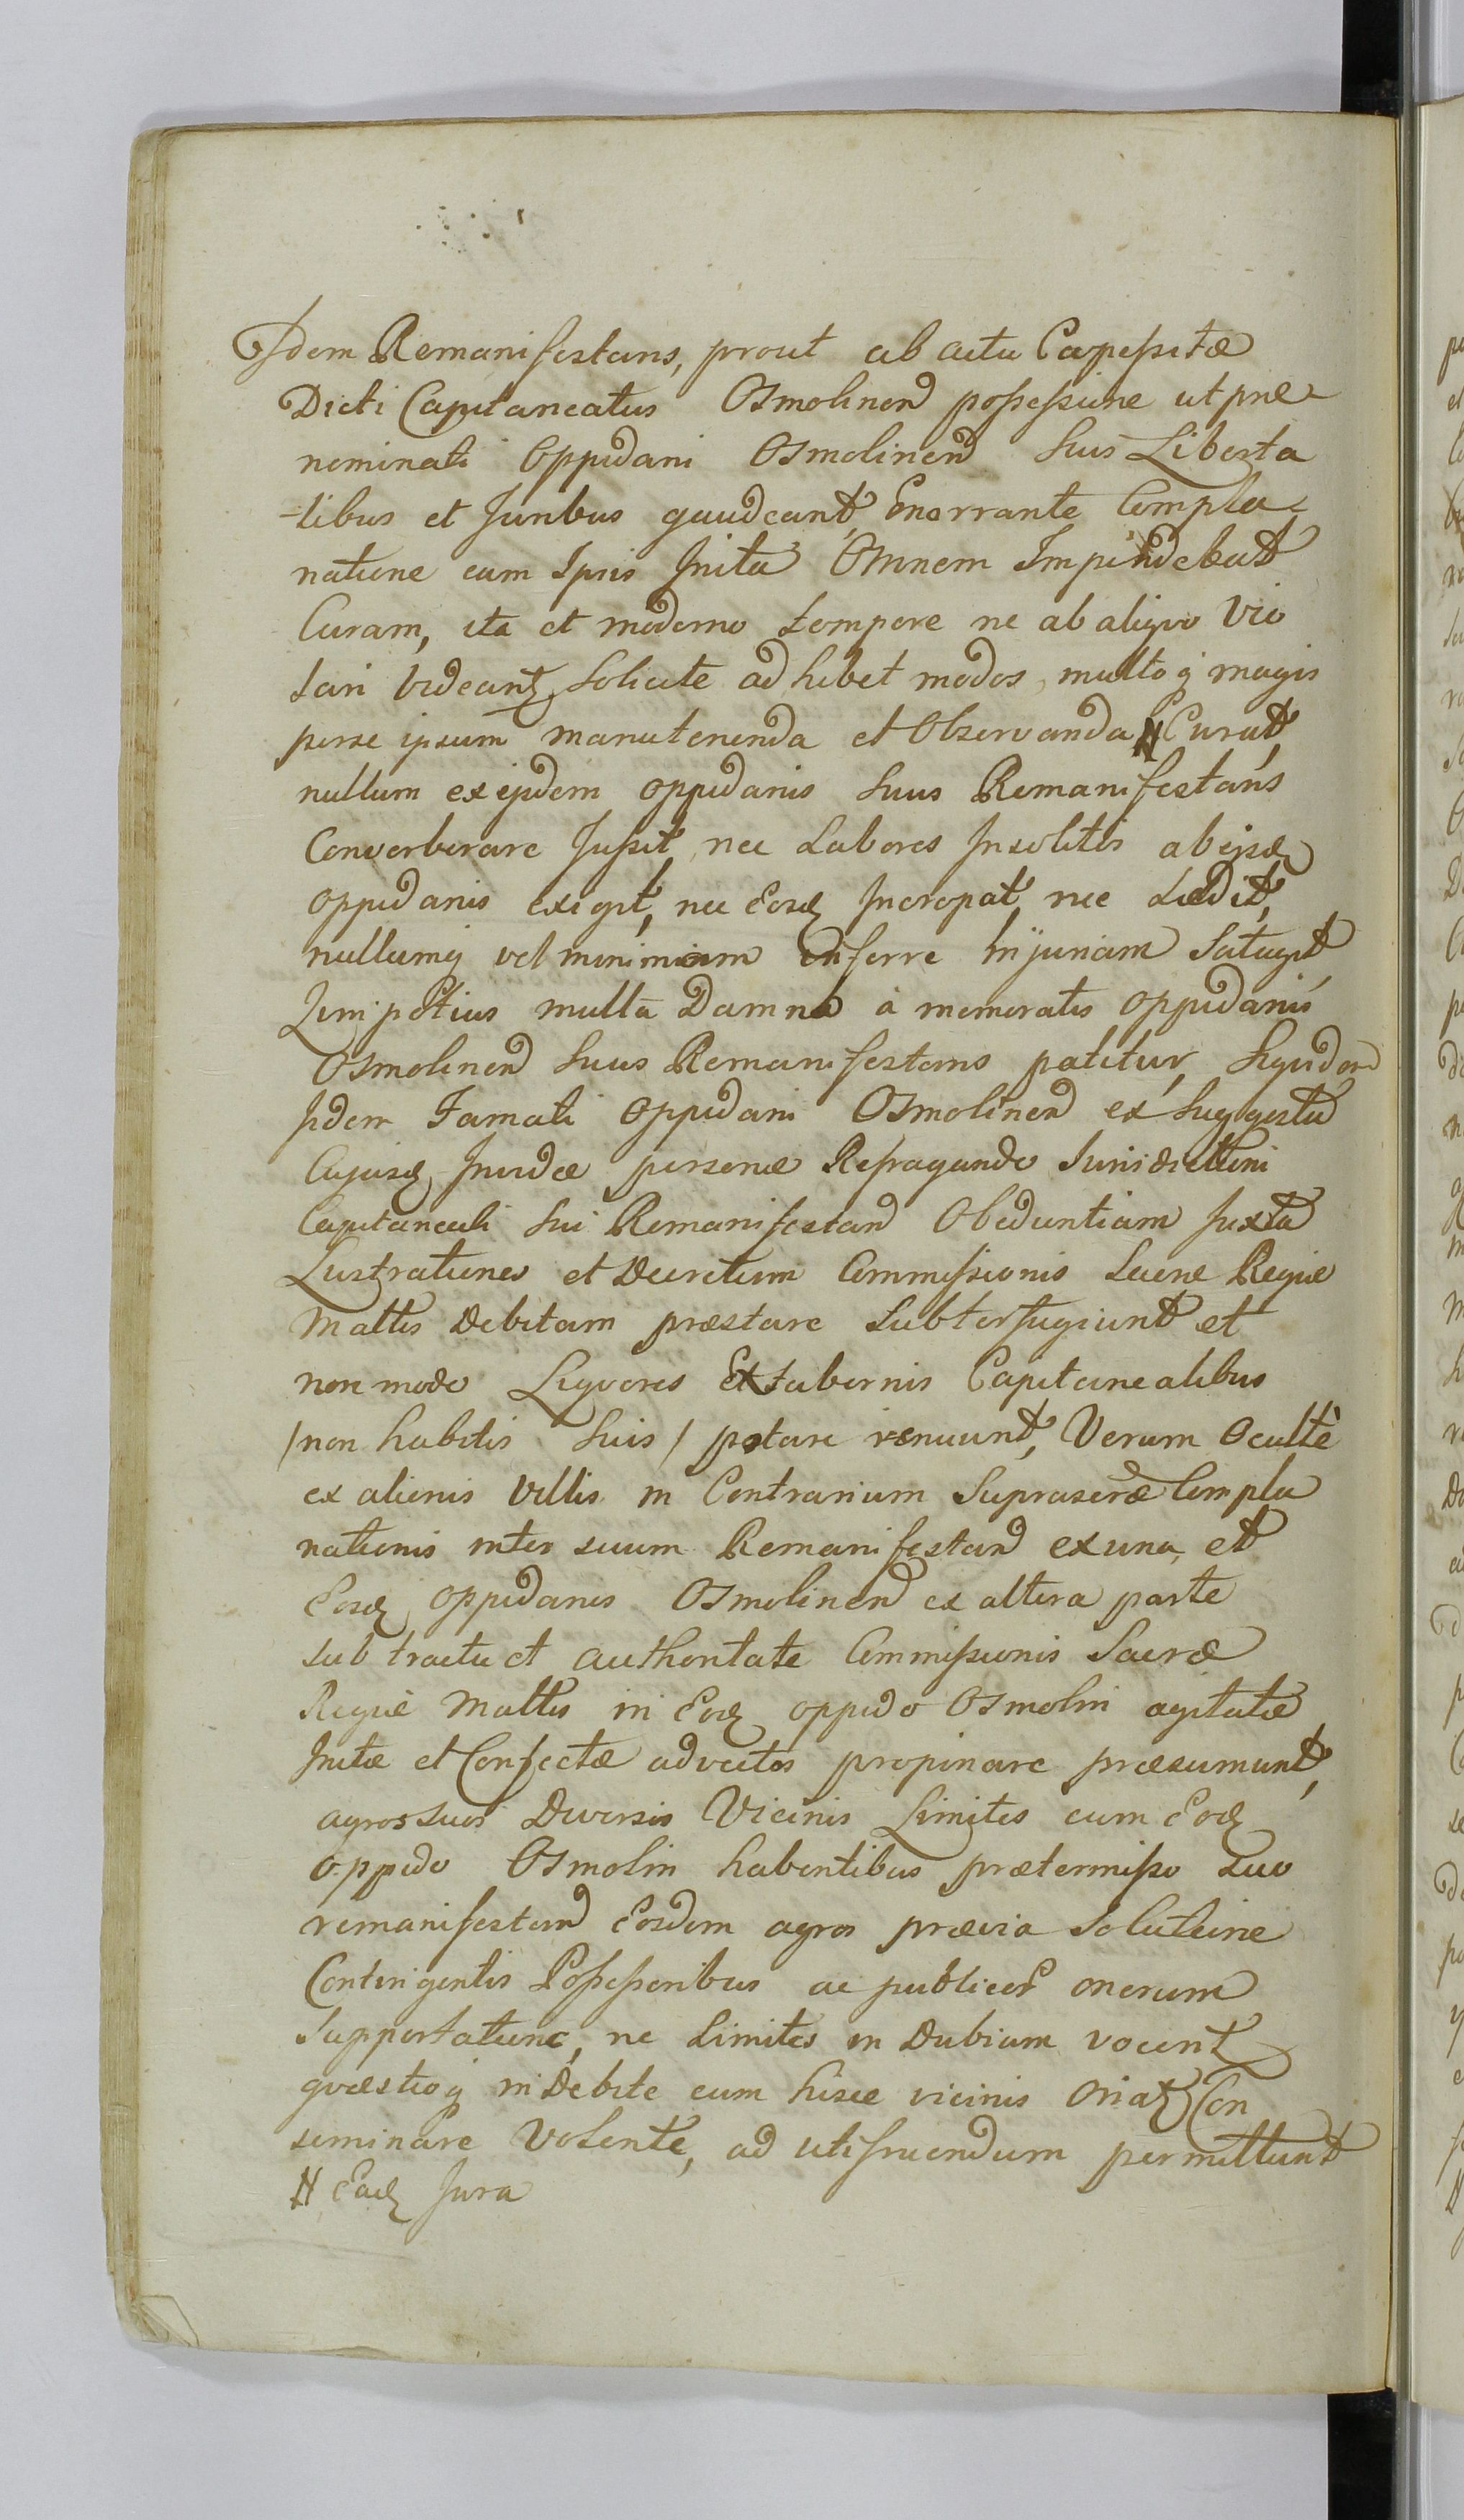 Idem Remanifestans, prout ab actu Capessitæ
Dicti Capitaneatus Osmolinen possessione ut præ-
nominati Oppidani Osmolinen suis Liberta
-tibus et Juribus gaudeant, Enarrante Compla-
natione cum Ipsis Inita Omnem Impendebat
Curam, ita et moderno tempore ne ab aliqvo Vio
lari videantʒ, Solicite ad hibet modos, multo qʒ magis
perse ipsum manutenenda et Observanda # Curat,
nullum exejsdem oppidanis Suus Remanifestans
Converberare Jussit, nec Labores Insolitos abejsdʒ
oppidanis exegit, nec Eosdʒ Increpat, nec Lædit,
nullamqʒ vel minimam inferre Injuriam Satagit,
Qvinpotius multa Damna à memoratis oppidanis
Osmolinen Suus Remanifestans patitur, Siqvidem
Jidem Famati Oppidani Osmolinen ex Suggestu
Cujusdʒ Invidæ personæ Refragando Jurisdictioni
Capitaneali Sui Remanifestan Obedientiam Juxta
Lustrationes et Decretum Commissionis Sacræ Regiæ
Mattis Debitam præstare Subterfugiunt et
non modo Liqvores Ex tabernis Capitanealibus
/non habitis Suis/ potare renuunt, Verum Occultè
ex alienis Villis in Contrarium Suprascræ Compla
nationis inter suum Remanifestan ex una, et
Eosdʒ Oppidanos Osmolinen ex altera parte
sub tractu et authoritate Commissionis Sacræ
Regiæ Mattis in Eodʒ oppido Osmolin agitatæ
Initæ et Confectæ advectos propinare præsumunt,
agros suos Diversis Vicinis Limites cum Eodʒ
oppido Osmolin habentibus prætermisso suo
remanifestan Eosdem agros prævia Solutione
Contingentis Possessoribus ac publicor onerum
Supportatione, ne Limites in Dubium vocent
qvæstioqʒ inDebite cum hisce vicinis Oriatʒ Con
seminare Volente, ad utifruendum permittunt
# Eadʒ Jura